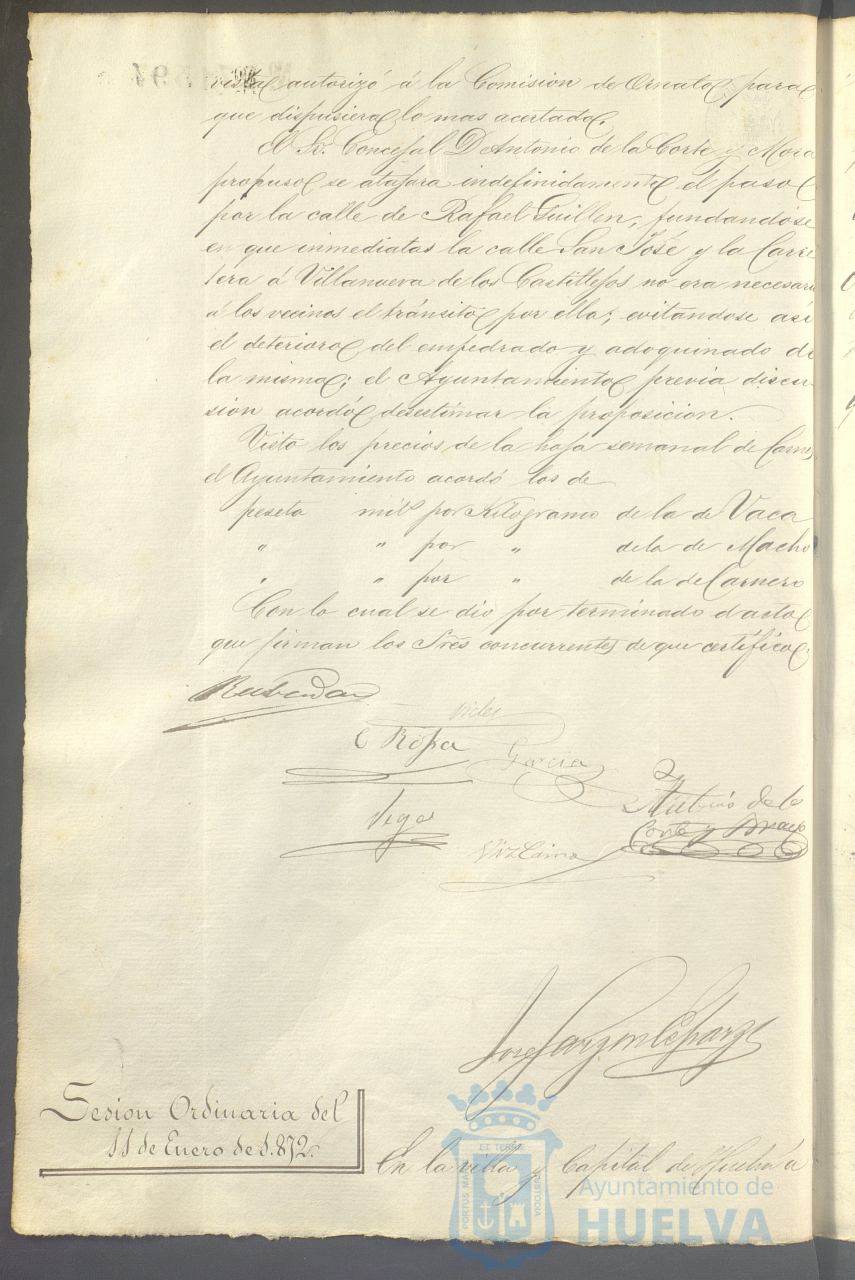 vista autorizó á la Comision de Ornato, para
que dispusiera lo mas acertado.
El Sr. Concejal D Antonio de la Corte y Mora
propuso se atajara indefinidamente el paso
por la calle de Rafael Guillen, fundandose
en que inmediatas la calle San José y la Carre
tera á Villanueva de los Castillejos no era necesari
á los vecinos el tránsito por ella; evitandose asi
el deterioro del empedrado y adoquinado de
la misma; el Ayuntamiento previa discu
sion acordó desestimar la proposicion.
Visto los precios de la hoja semanal de Carnes
el Ayuntamiento acordó los de
peseta mils por Kilogramo de la de Vaca
" " por " de la de Macho
" " por " de la de Carnero
Con lo cual se dio por terminado el acto
que firman los Sres concurrentes de que certifico.
Vides
Garcia
Vega
Antonio de la
Corte y
Sesion Ordinaria del
11 de Enero de 1.872.
En la villa y Capital de Huelva á
PORTUS MARIS ET TERRE CUSTODIA
Ayuntamiento de
HUELVA